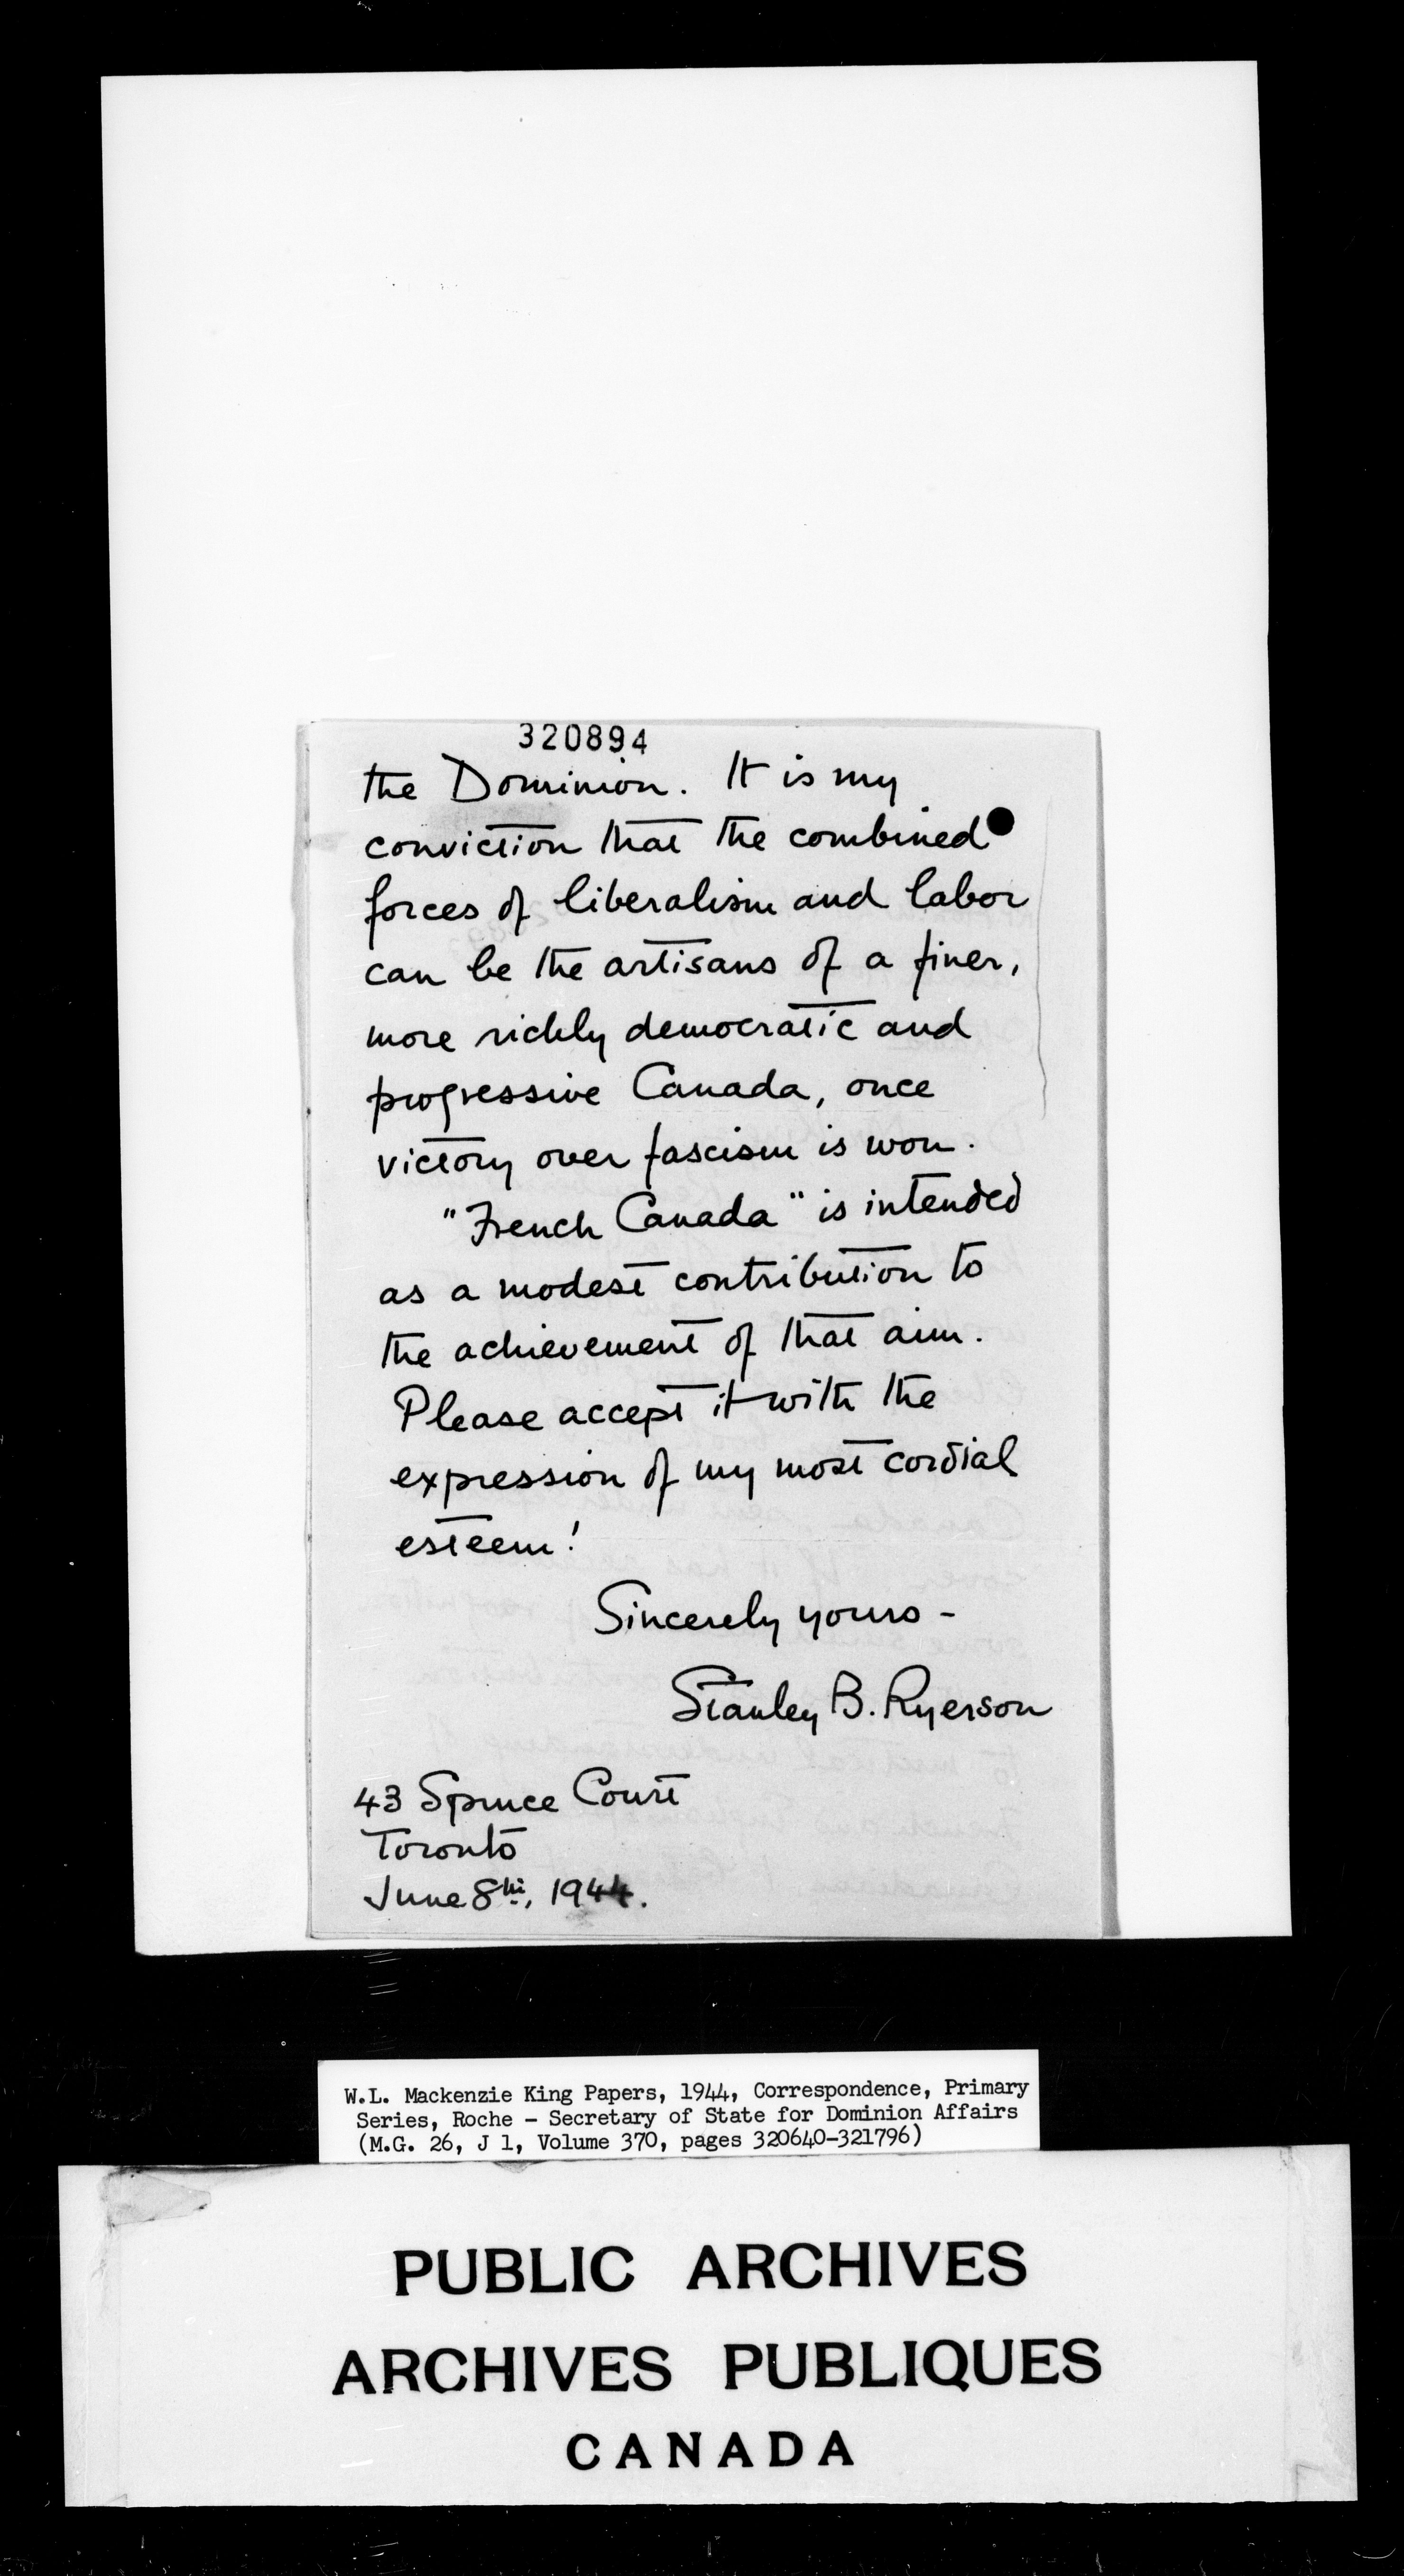 320894
the Dominion. It is my
conviction that the combined
forces of liberalism and labor
can be the artisans of a finer,
more richly democratic and
progressive Canada, once
victory over fascism is won.
"French Canada" is intended
as a modest contribution to
the achievement of that aim.
Please accept it with the
expression of my most cordial
esteem!
Sincerely yours -
Stanley B. Ryerson
43 Spruce Court
Toronto
June 8th, 1944.
W.L. Mackenzie King Papers, 1944, Correspondence, Primary
Series, Roche - Secretary of State for Dominion Affairs
(M.G. 26, J 1, Volume 370, pages 320640-321796)
PUBLIC ARCHIVES
ARCHIVES PUBLIQUES
CANADA